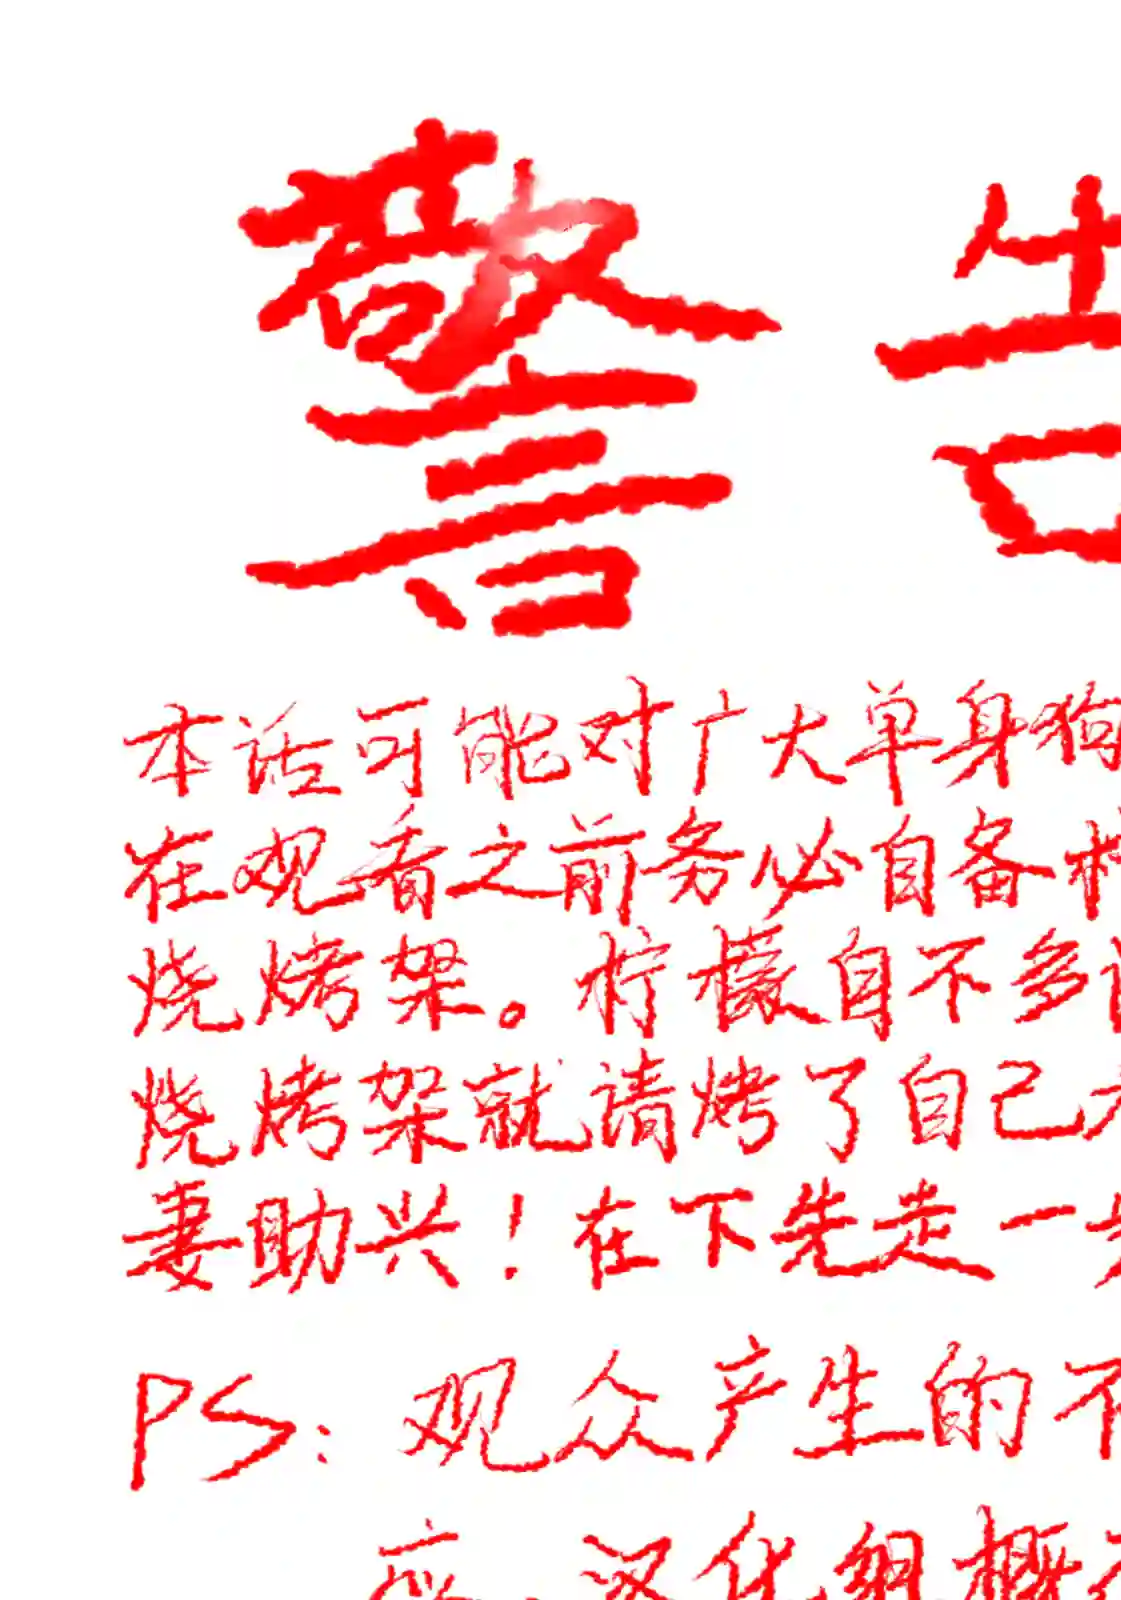 警告
本话可能对广大单身狗
在观看之前务必自备柠
烧烤架。柠檬自不多
烧烤架就请烤了自己
妻助兴！在下先走一步
PS：观众产生的不
应，汉化组概